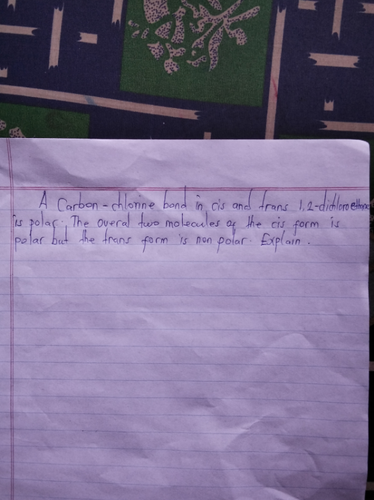 A Carbon-chlorine bond in cis and trans 1,2-dichloroethene
is polar. The overal two molecules of the cis form is
polar but the trans form is non polar. Explain.